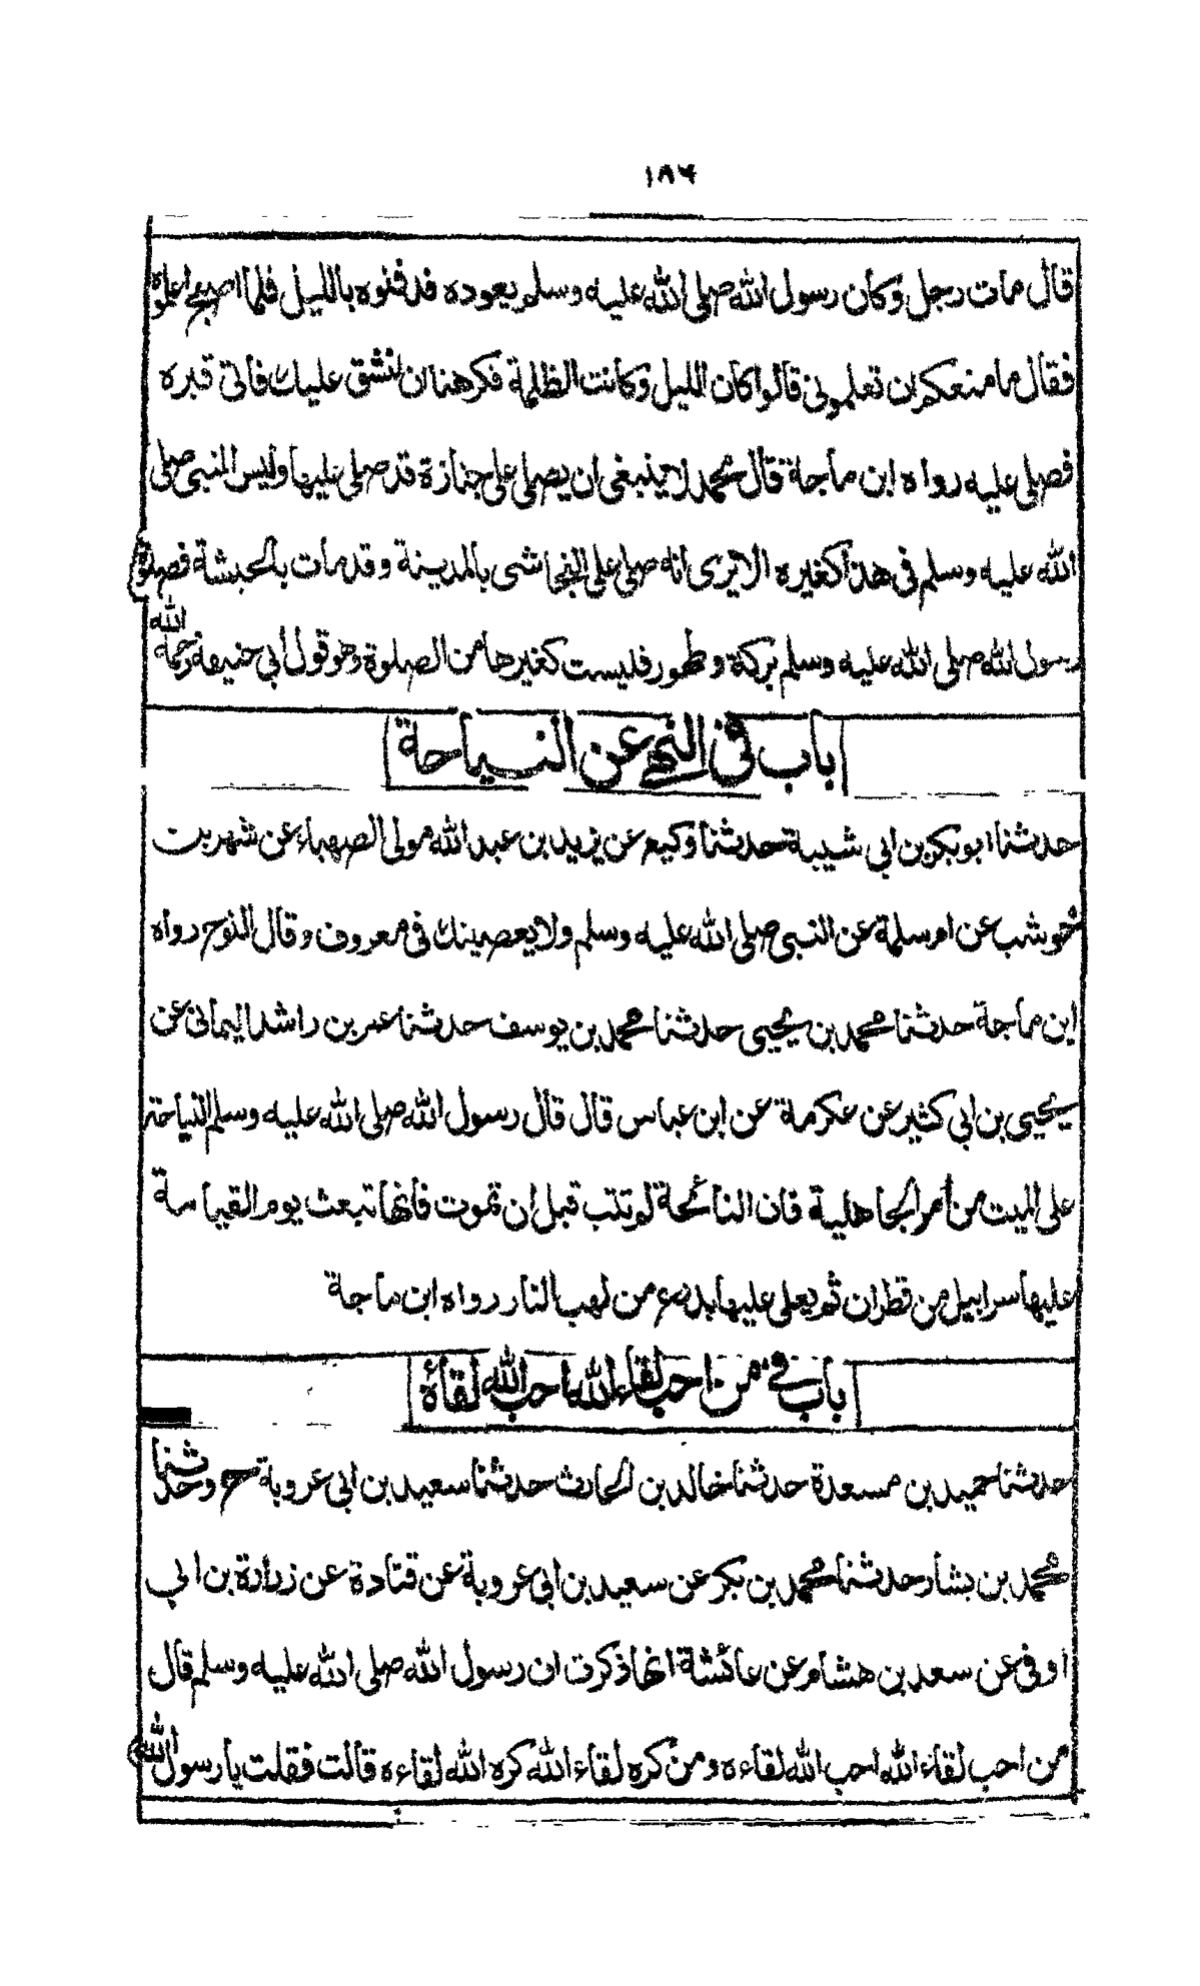 ١٨٦
قال مات رجل وكان رسول الله صلى الله عليه وسلم يعوده فدفنوه بالليل فلما اصبح اعلموه
فقال ما منعكم ان تعلموني قالوا كان الليل وكانت الظلمة فكرهنا ان نشق عليك فاتى قبره
فصلى عليه رواه ابن ماجة قال محمد لا ينبغي ان يصلى على جنازة قد صلى عليها وليس النبي صلى
الله عليه وسلم في هذا كغيره الا يرى انه صلى على النجاشى بالمدينة وقد مات بالحبشة فصلوة
رسول الله صلى الله عليه وسلم بركة وطهور فليست كغيرها من الصلوة وهو قول ابي حنيفة رحمه الله
باب في النهي عن النياحة
حدثنا ابو بكر بن ابي شيبة حدثنا وكيع عن يزيد بن عبد الله مولى الصهباء عن شهر بن
حوشب عن ام سلمة عن النبي صلى الله عليه وسلم ولا يعصينك في معروف وقال النوح رواه
ابن ماجة حدثنا محمد بن يحيى حدثنا محمد بن يوسف حدثنا عمر بن راشد اليماني عن
يحيى بن ابي كثير عن عكرمة عن ابن عباس قال قال رسول الله صلى الله عليه وسلم النياحة
على الميت من أمر الجاهلية فان النائحة لم تتب قبل ان تموت فانها تبعث يوم القيامة
عليها سرابيل من قطران ثم يعلى عليها بدرع من لهب النار رواه ابن ماجة
باب في من احب لقاء الله احب الله لقاءه
حدثنا حميد بن مسعدة حدثنا خالد بن الحارث حدثنا سعيد بن ابي عروبة ح وحدثنا
محمد بن بشار حدثنا محمد بن بكر عن سعيد بن ابي عروبة عن قتادة عن زرارة بن ابي
اوفى عن سعد بن هشام عن عائشة انها ذكرت ان رسول الله صلى الله عليه وسلم قال
من احب لقاء الله احب الله لقاءه ومن كره لقاء الله كره الله لقاءه قالت فقلت يا رسول الله